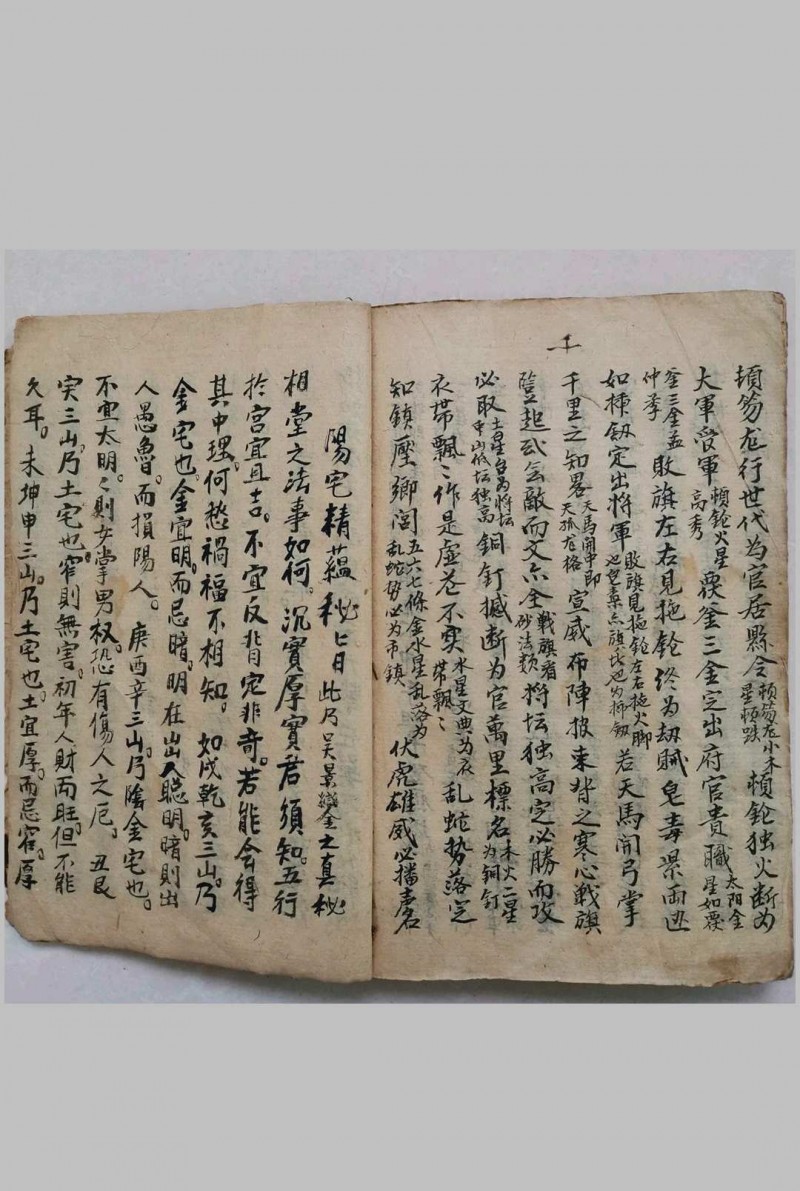 頓笏尨行世代為官居縣令頓笏尨小木星恆跌頓鎗独火断为
大軍受軍頓鎗火星高秀覆釜三金定出府官貴職太阳金星如覆
釜三金孟仲季敗旗左右見拖鎗终为刼賊皂毒眾两边
如棟劔定出將軍敗旗見拖鎗左右拖火脚若天馬開弓掌
千里之知畧宣威布陣披束背之寒心戦旗
豎起武会敵而文亦全将坛独高定必勝而攻
必取土星台为将坛中山低坛独高銅釘撼断为官萬里標名木火二星为铜钉
衣带飄飄作是虚花不实水星文典为衣带飘乱蛇势落定
知鎮壓鄉閭五六七條金水星乱落为乱蛇势必为市鎮伏虎雄威必播声名
陽宅精蘊秘七日此乃吴景鸞之真秘
相堂之法事如何。沉實厚實君須知。五行
於宫宜且吉。不宜反背定非奇。若能会得
其中理。何愁禍福不相知。如戍乾亥三山。乃
金宅也。金宜明。而忌暗。明在出人聪明。暗則出
人愚魯。而損陽人。庚酉辛三山。乃陰金宅也。
不宜太明。〻則女掌男权。恐有傷人之厄。丑艮
寅三山。乃土宅也。窄則無害。初年人財两旺。但不能
久耳。未坤申三山。乃土宅也。土宜厚。而忌窄。厚